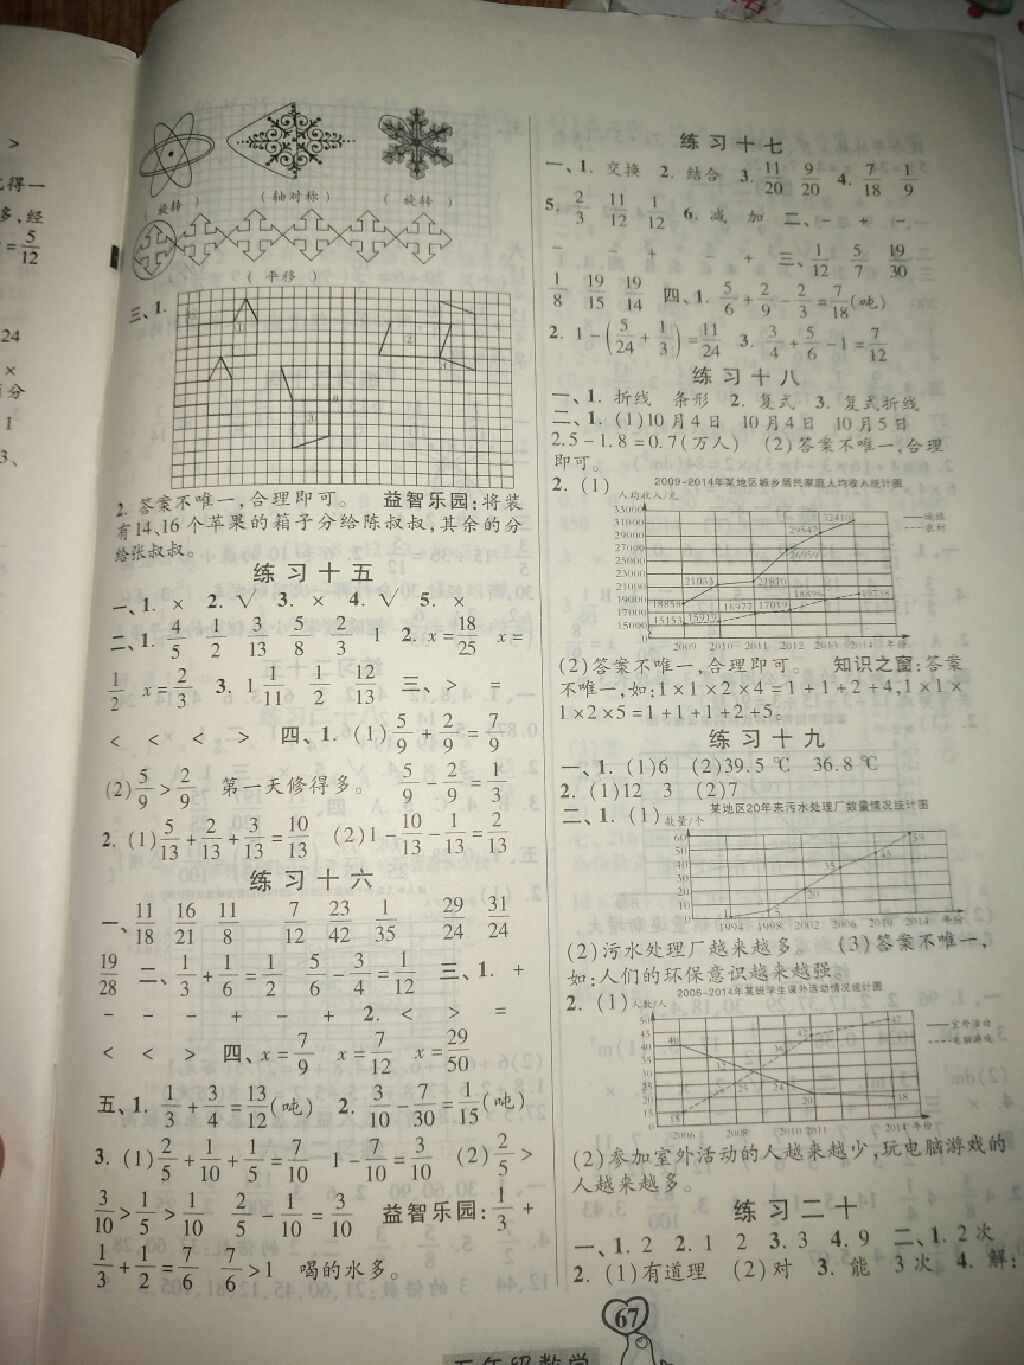 >
得一
多,经
=5/12
24
×
百分
1
3、
(旋转) (轴对称) (旋转)
(平移)
三、1.
1
2
3
4
2. 答案不唯一,合理即可。 益智乐园:将装
有14、16个苹果的箱子分给陈叔叔,其余的分
给张叔叔。
练习十五
一、1. × 2. √ 3. × 4. √ 5. ×
二、1. 4/5 1/2 3/13 5/8 2/3 1 2. x=18/25 x=
1/2 x=2/3 3. 1 1/11 1/2 12/13 三、> =
< < < > 四、1. (1)5/9+2/9=7/9
(2)5/9>2/9 第一天修得多。 5/9-2/9=1/3
2. (1)5/13+2/13+3/13=10/13 (2)1-10/13-1/13=2/13
练习十六
一、11/18 16/21 11/8 7/12 23/42 1/35 29/24 31/24
19/28 二、1/3+1/6=1/2 5/6-3/4=1/12 三、1. +
- - - + - + 2. < > =
< < > 四、x=7/9 x=7/12 x=29/50
五、1. 1/3+3/4=13/12(吨) 2. 3/10-7/30=1/15(吨)
3. (1)2/5+1/10+1/5=7/10 1-7/10=3/10 (2)2/5>
3/10>1/5>1/10 2/5-1/10=3/10 益智乐园:1/3+
1/3+1/2=7/6 7/6>1 喝的水多。
练习十七
一、1. 交换 2. 结合 3. 11/20 9/20 4. 7/18 1/9
5. 2/3 11/12 1/12 6. 减 加 二、- + -
- - + - + 三、1/12 5/7 19/30
1/8 19/15 19/14 四、1. 5/6+2/9-2/3=7/18(吨)
2. 1-(5/24+1/3)=11/24 3. 3/4+5/6-1=7/12
练习十八
一、1. 折线 条形 2. 复式 3. 复式折线
二、1. (1)10月4日 10月4日 10月5日
2.5-1.8=0.7(万人) (2)答案不唯一,合理
即可。
2. (1) 2009-2014年某地区城乡居民家庭人均收入统计图
人均收入/元
33000
31000
29000
27000
25000
23000
21000
19000
17000
15000
0
18858 21033 21810 26959 29547 32410
15153 15919 16977 17019 18896 19738
城镇
农村
2009 2010 2011 2012 2013 2014 年份
(2)答案不唯一,合理即可。 知识之窗:答案
不唯一,如:1×1×2×4=1+1+2+4,1×1×
1×2×5=1+1+1+2+5。
练习十九
一、1. (1)6 (2)39.5 ℃ 36.8 ℃
2. (1)12 3 (2)7
二、1. (1) 某地区20年来污水处理厂数量情况统计图
数量/个
60
50
40
30
20
10
0
1 5 20 35 45 59
1994 1998 2002 2006 2010 2014 年份
(2)污水处理厂越来越多。 (3)答案不唯一,
如:人们的环保意识越来越强。
2. (1) 2006-2014年某班学生课外活动情况统计图
人数/人
50
45
40
35
30
25
20
15
40 32 24 20 18
15 25 36 42 47
室外活动
电脑游戏
2006 2008 2010 2011 2014 年份
(2)参加室外活动的人越来越少,玩电脑游戏的
人越来越多。
练习二十
一、1. 2 2. 1 2 3. 3 4. 9 二、1. 2次
2. (1)有道理 (2)对 3. 能 3次 4. 解:
67
五年级数学